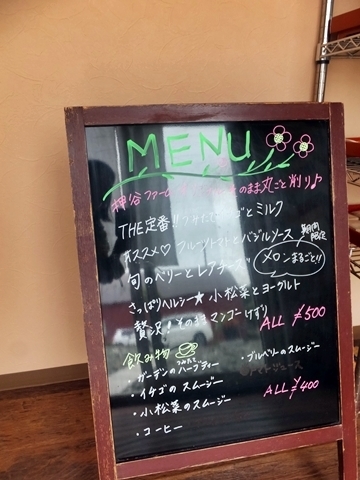 MENU
神谷ファーム そのまま丸ごと削り♪
THE定番!! ごとミルク
オススメ♡ フルーツトマトとバジルソース
期間限定
旬のベリーとレアチーズ
メロンまるごと!!
さっぱりヘルシー★小松菜とヨーグルト
贅沢!そのままマンゴーけずり
ALL ¥500
飲み物
・ガーデンのハーブティー
つみたて
・イチゴのスムージー
・小松菜のスムージー
・コーヒー
・ブルベリーのスムージー
ALL ¥400